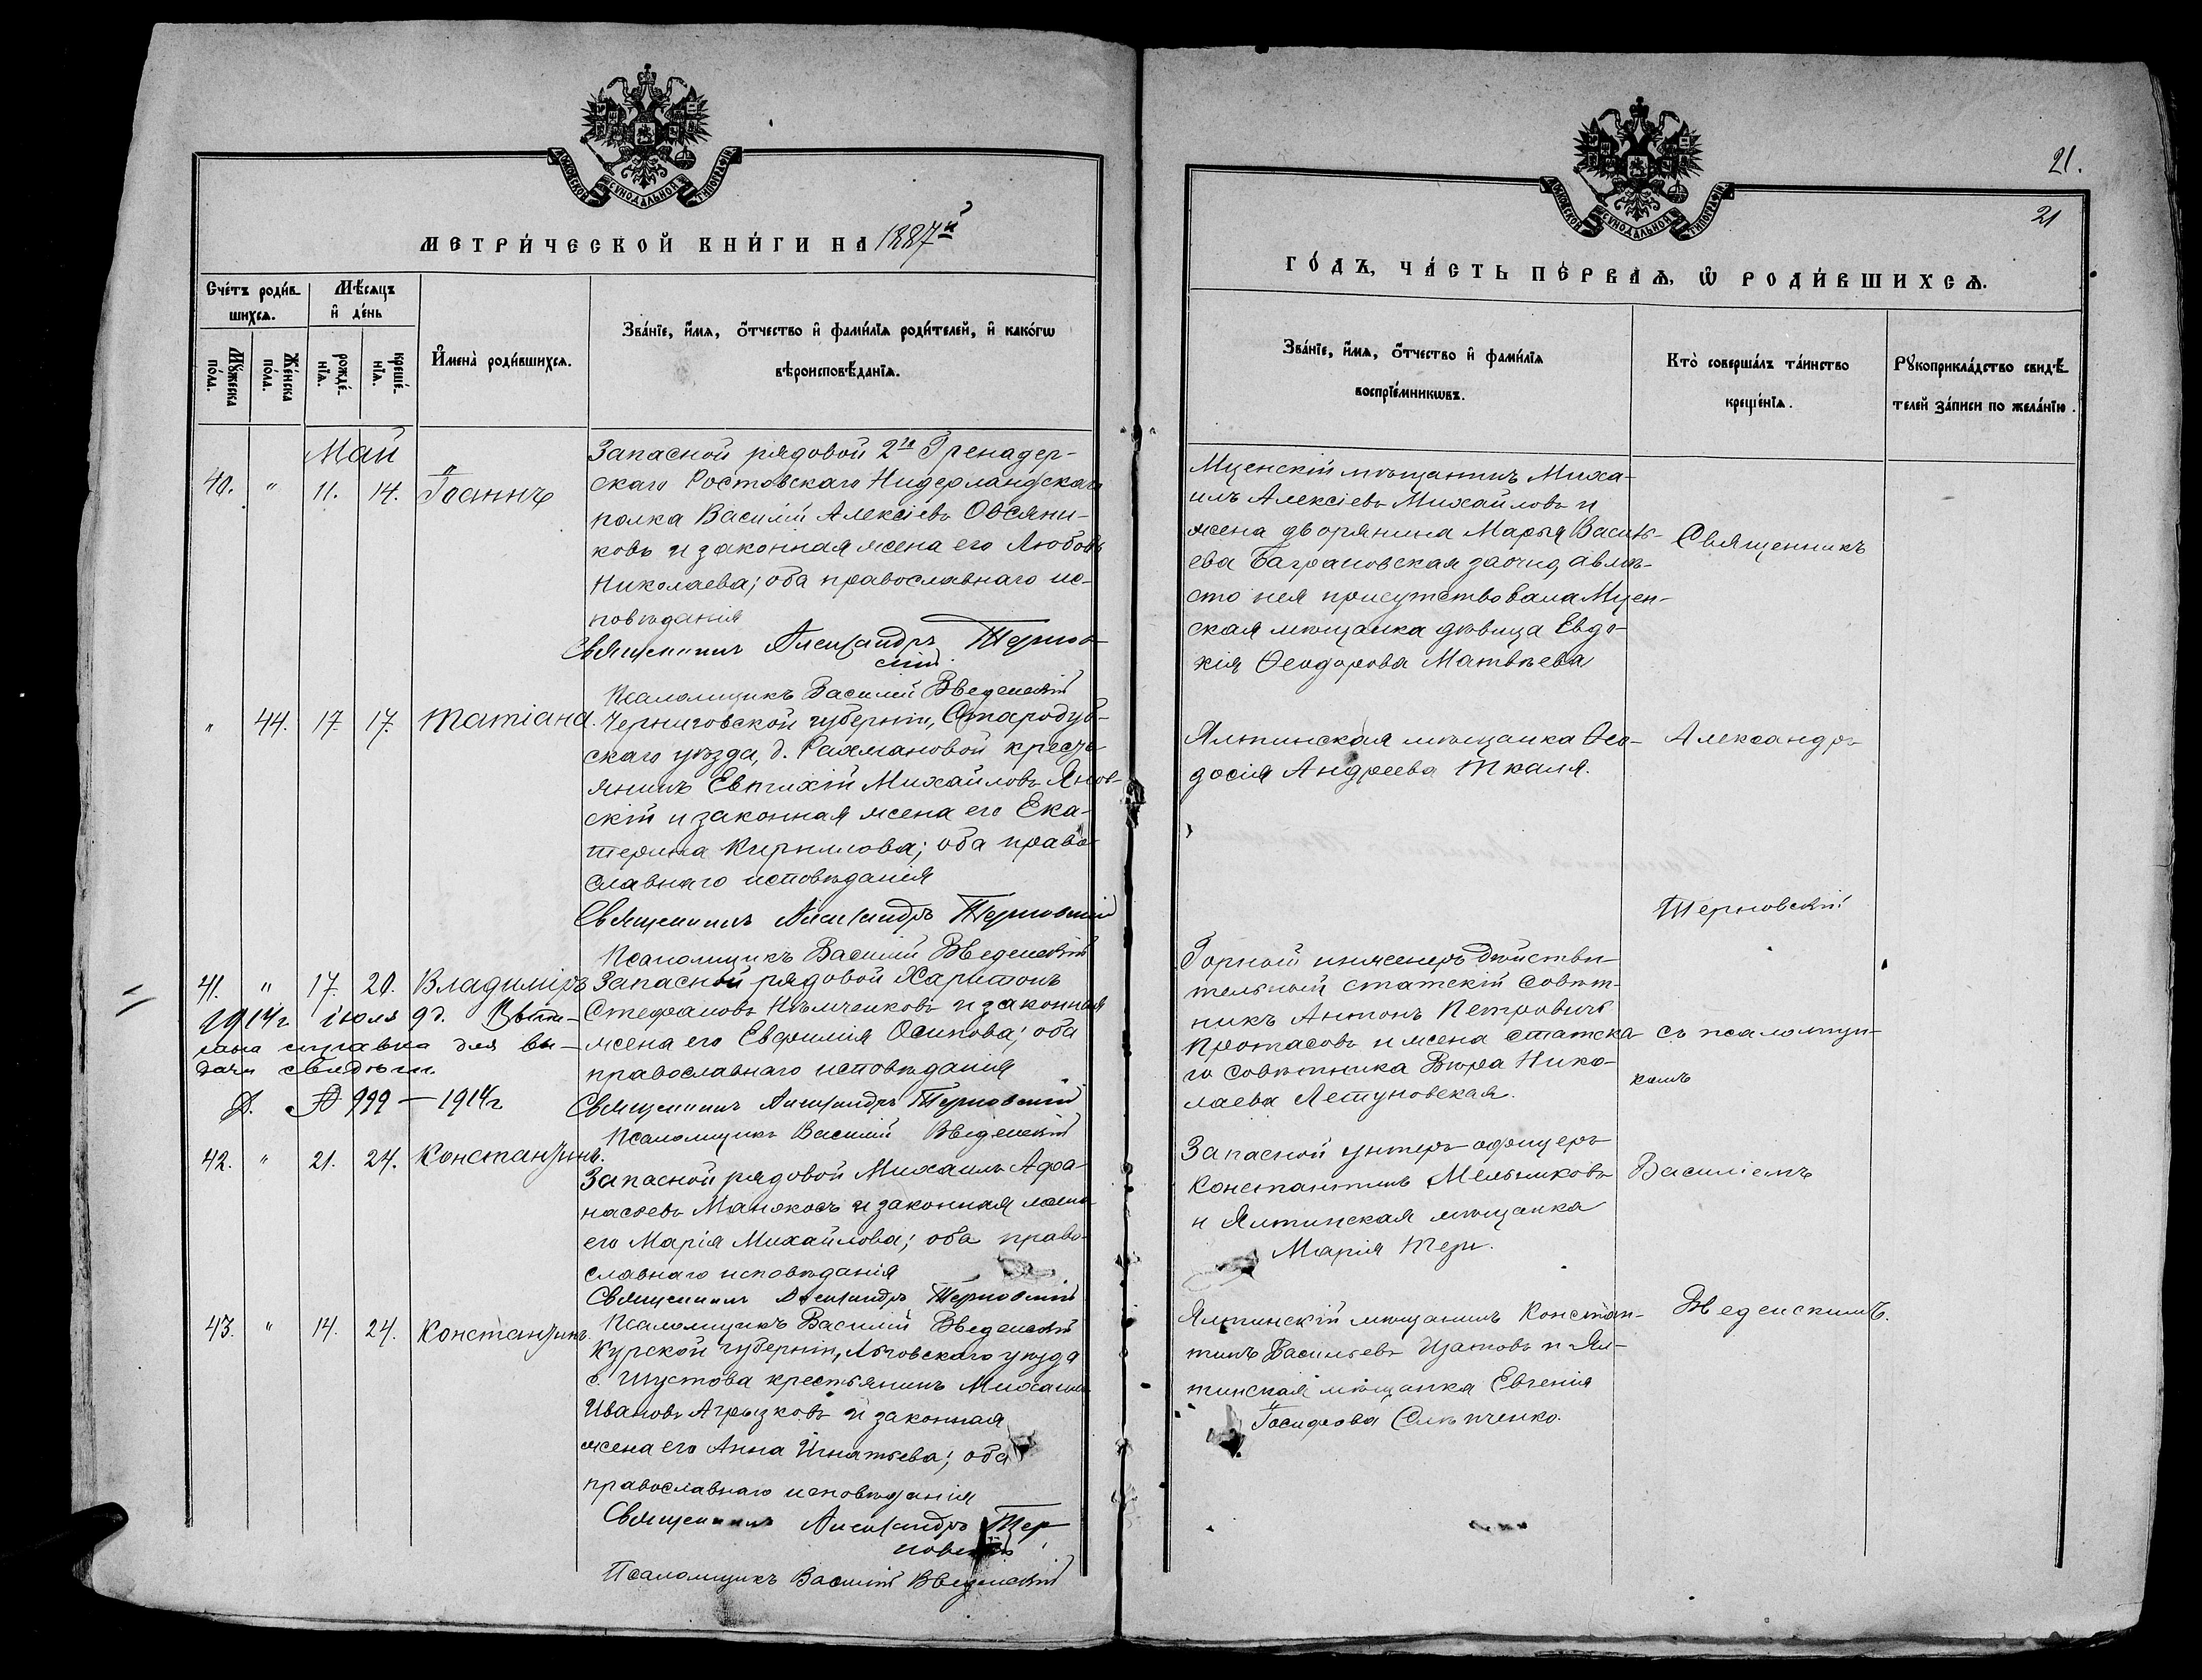 МОСКОВСКОЙ СѴНОДАЛЬНОЙ ТИПОГРАФІИ
МЕТРИ́ЧЕСКОЙ КНИ́ГИ НА 1887й
Сче́тъ роди́в-
шихсѧ.
Мѣ́сѧцъ
и҆ де́нь
Мꙋ́жеска по́ла.
Же́нска по́ла.
рожде́-нїѧ.
креще́-нїѧ.
И҆мена̀ роди́вшихсѧ.
Зва́нїе, и҆́мѧ, ѻ҆́тчество и҆ фами́лїѧ роди́телей, и҆ како́гѡ
вѣроисповѣ́данїѧ.
Май
40. " 11. 14. Іоаннъ
Запасной рядовой 2го Гренадер-
скаго Ростовскаго Нидерландскаго
полка Василій Алексіевъ Овсяни-
ковъ и законная жена его Любовь
Николаева; оба православнаго ис-
повѣданія
Священникъ Александръ Тернов-
скій.
Псаломщикъ Василій Введенскій
" 44. 17. 17. Татіана.
Черниговской губерніи, Стародуб-
скаго уѣзда, д. Рахмановой кресть-
янинъ Евтихій Михайловъ Янов-
скій и законная жена его Ека-
терина Кириллова; оба право-
славнаго исповѣданія
Священникъ Александръ Терновскій
Псаломщикъ Василій Введенскій
41. " 17. 20. Владиміръ
Запасной рядовой Харитонъ
Стефановъ Нѣмченковъ и законная
жена его Евфимія Осипова; оба
православнаго исповѣданія
Священникъ Александръ Терновскій
Псаломщикъ Василій Введенскій
1914г іюля 9д.
справка для вы-
дачи свидѣт.
999 — 1914г
42. " 21. 24. Константинъ.
Запасной рядовой Михаилъ Афа-
насьевъ и законная жена
его Марія Михайлова; оба право-
славнаго исповѣданія
Священникъ Александръ Терновскій
Псаломщикъ Василій Введенскій
43. " 14. 24. Константинъ.
Курской губерніи, Льговскаго уѣзда
с. Шустова крестьянинъ Михаилъ
Ивановъ Агрызковъ и законная
жена его Анна Игнатьева; оба
православнаго исповѣданія
Священникъ Александръ Тер-
новскій
Псаломщикъ Василій Введенскій
21.
21
МОСКОВСКОЙ СѴНОДАЛЬНОЙ ТИПОГРАФІИ
ГО́ДЪ, ЧА́СТЬ ПЕ́РВАѦ, Ѡ҆ РОДИ́ВШИХСѦ.
Зва́нїе, и҆́мѧ, ѻ҆́тчество и҆ фами́лїѧ
воспрїе́мникѡвъ.
Кто̀ соверша́лъ та́инство
креще́нїѧ.
Рꙋкоприкла́дство свидѣ́-
телей за́писи по жела́нїю.
Мценскій мѣщанинъ Миха-
илъ Алексіевъ Михайловъ и
жена дворянина Марья Василь-
ева Баграновская заочно, а вмѣ-
сто нея присутствовала Мцен-
ская мѣщанка дѣвица Евдо-
кія Ѳеодорова Матвѣева
Ялтинская мѣщанка Ѳео-
досія Андреева Ткаля.
Горной инженеръ Дѣйстви-
тельный статскій совѣт-
никъ Антонъ Петровичъ
Протасовъ и жена статска-
го совѣтника Вѣра Нико-
лаева Летуновская.
Запасной унтеръ-офицеръ
Константинъ Мельниковъ
и Ялтинская мѣщанка
Марія
Ялтинскій мѣщанинъ Констан-
тинъ Васильевъ и Ял-
тинская мѣщанка Евгенія
Іосифова Слѣпченко.
Священникъ
Александръ
Терновскій
съ псаломщи-
комъ
Василіемъ
Введенскимъ.